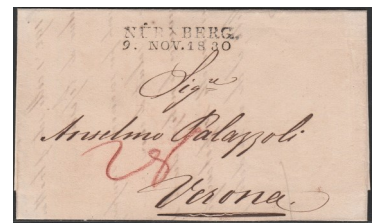 NÜRNBERG.
9. NOV. 1830
Sigre
Anselmo Palazzoli
Verona.